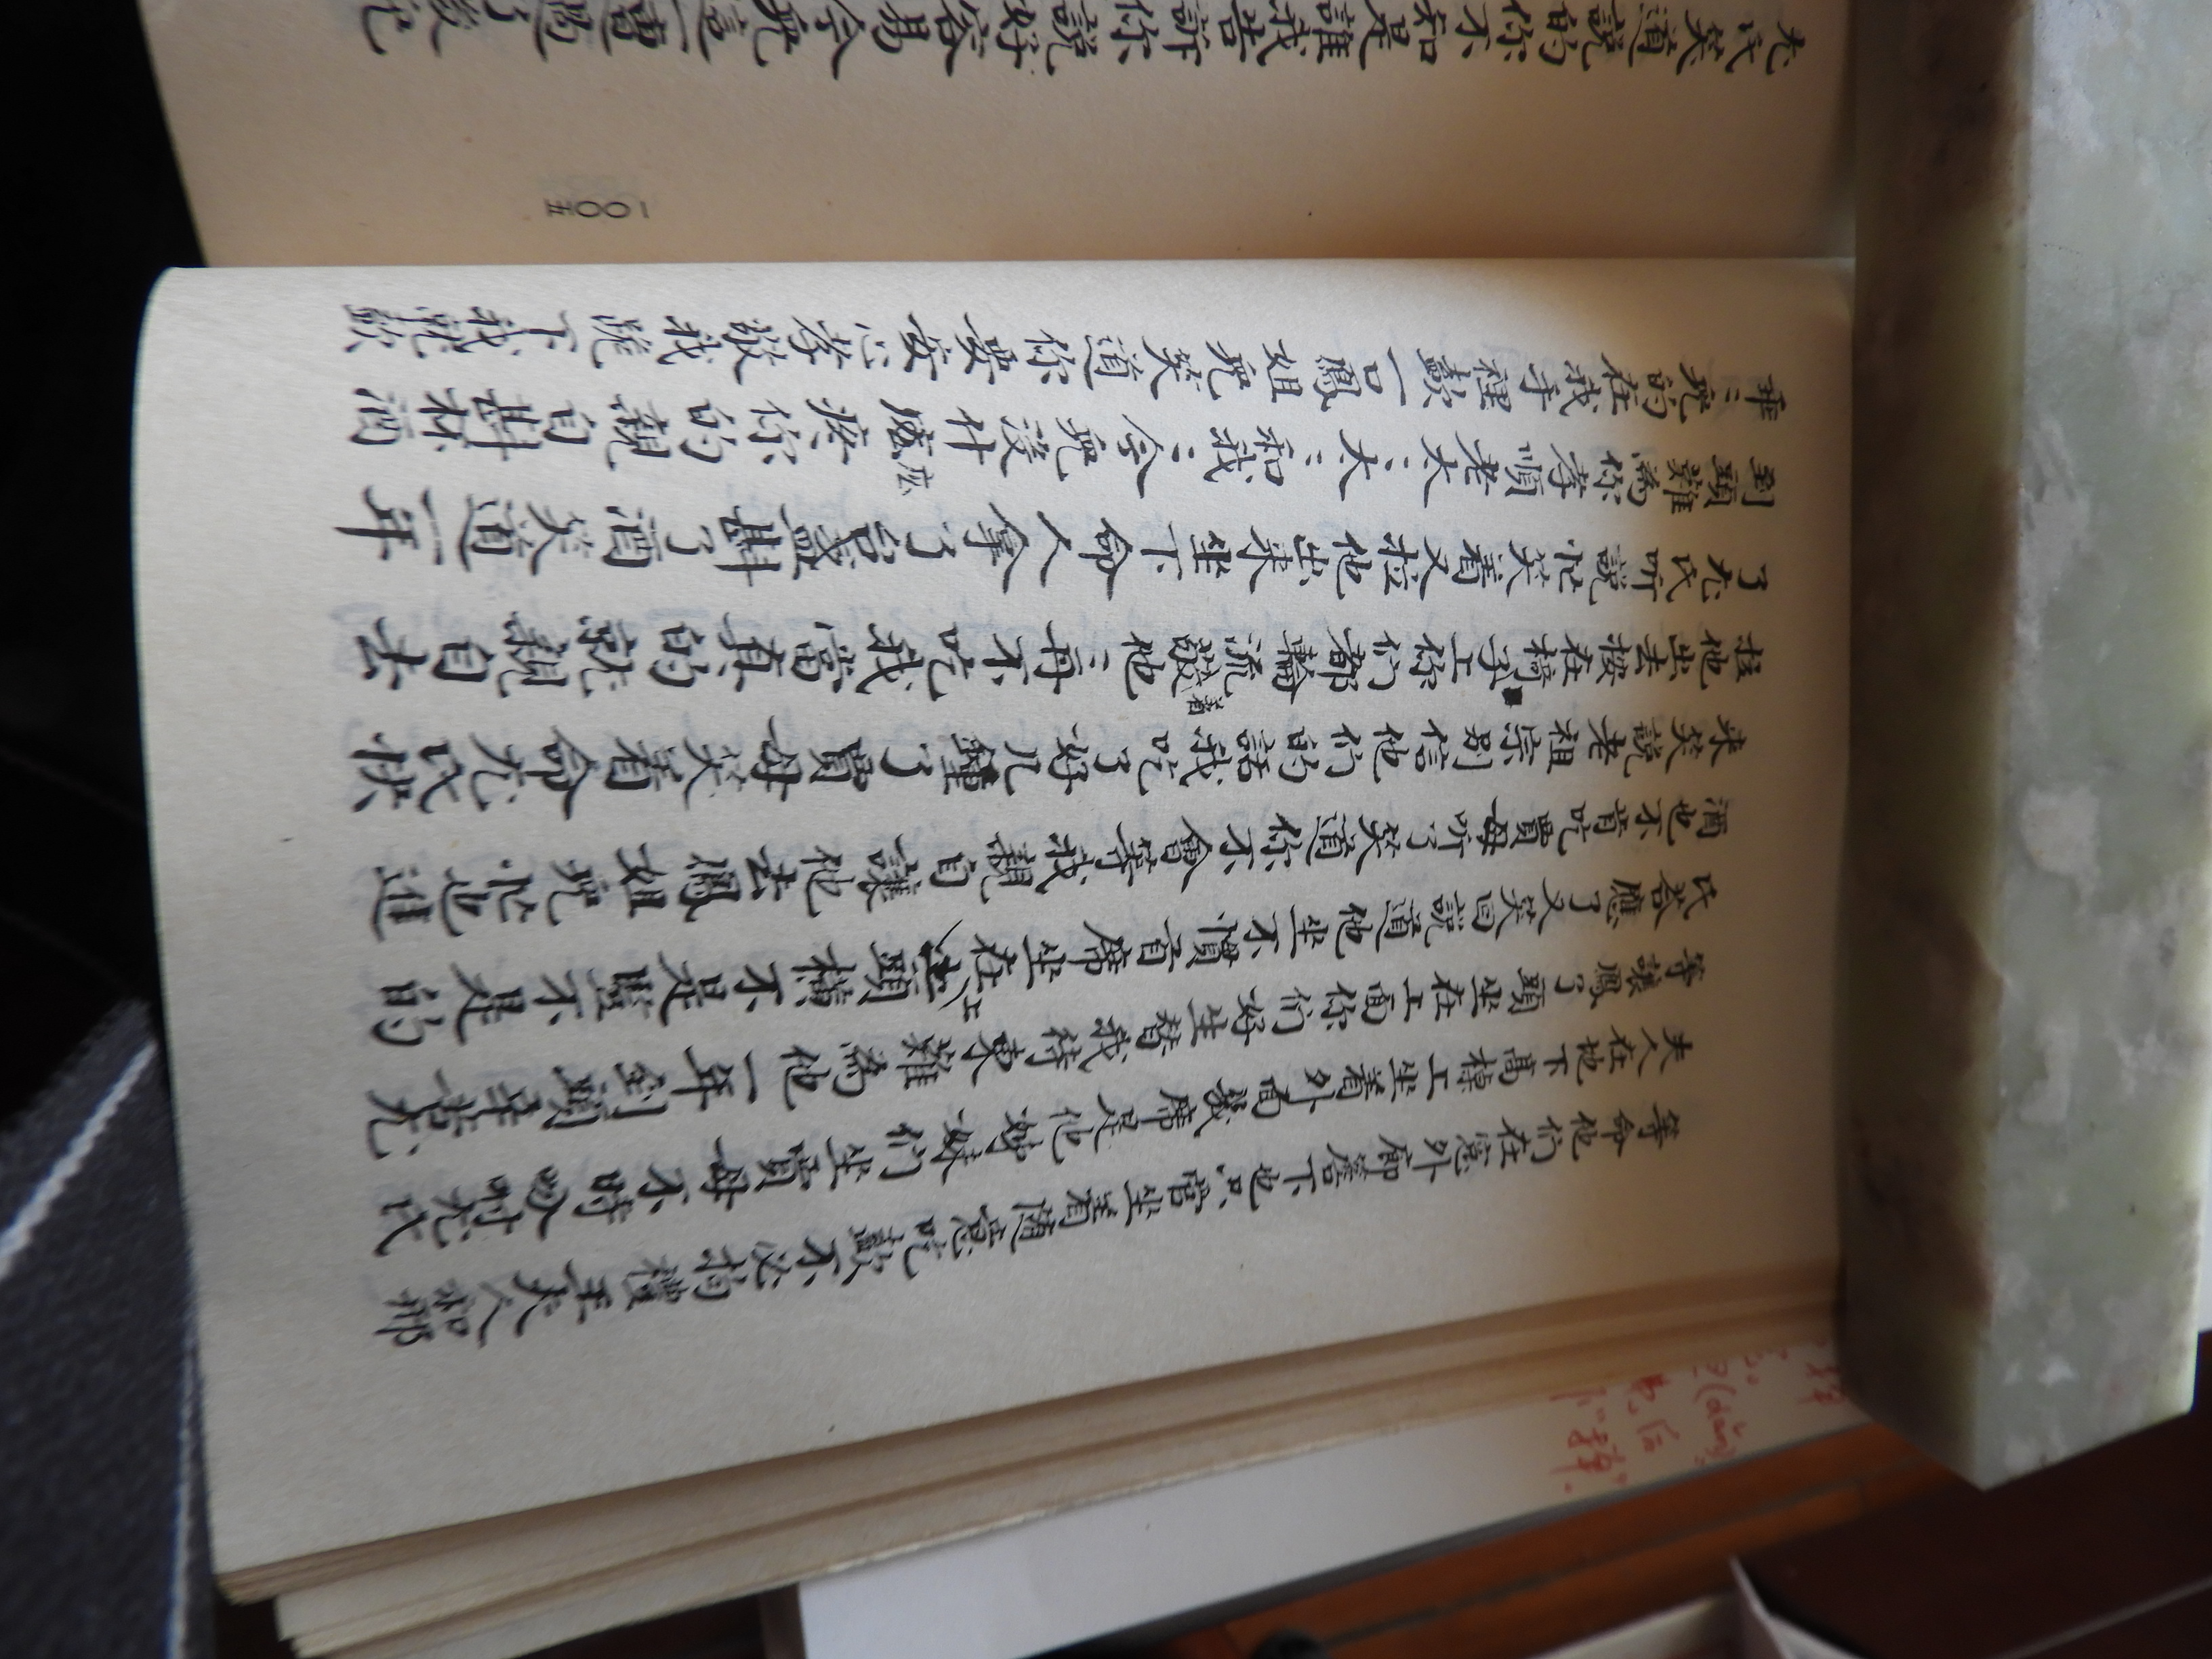 等命他们在窓外廊簷下也只管坐着隨意吃喝不必拘禮王夫人和邢
夫人在地下高棹上坐着外面幾席是他姊妹们坐賈母不時吩咐尤氏
等讓鳳丫頭坐在上面你们好生替我待東難為他一年到頭辛苦尤
氏答應了又笑回說道他坐不慣首席坐在上頭橫不是竪不是的
酒也不肯吃賈母听了笑道你不會等我親自讓他去鳳姐兒忙也進
来笑說老祖宗別信他们的話我吃了好几鍾了賈母笑着命尤氏快
拉他出去按在椅子上你们都輪流敬着他〻再不吃我當真的就親自去
了尤氏听說忙笑着又拉他出来坐下命人拿了台盞斟了酒笑道一年
到頭難為你孝順老太〻太〻和我今兒没什庅疼你的親自斟杯酒
乖〻兒的在我手裡喝一口鳳姐兒笑道你要安心孝敬我跪下我就喝
尤氏笑道說的你不知是誰我告訴你說好容易今兒這一遭過了後兒
一〇〇五